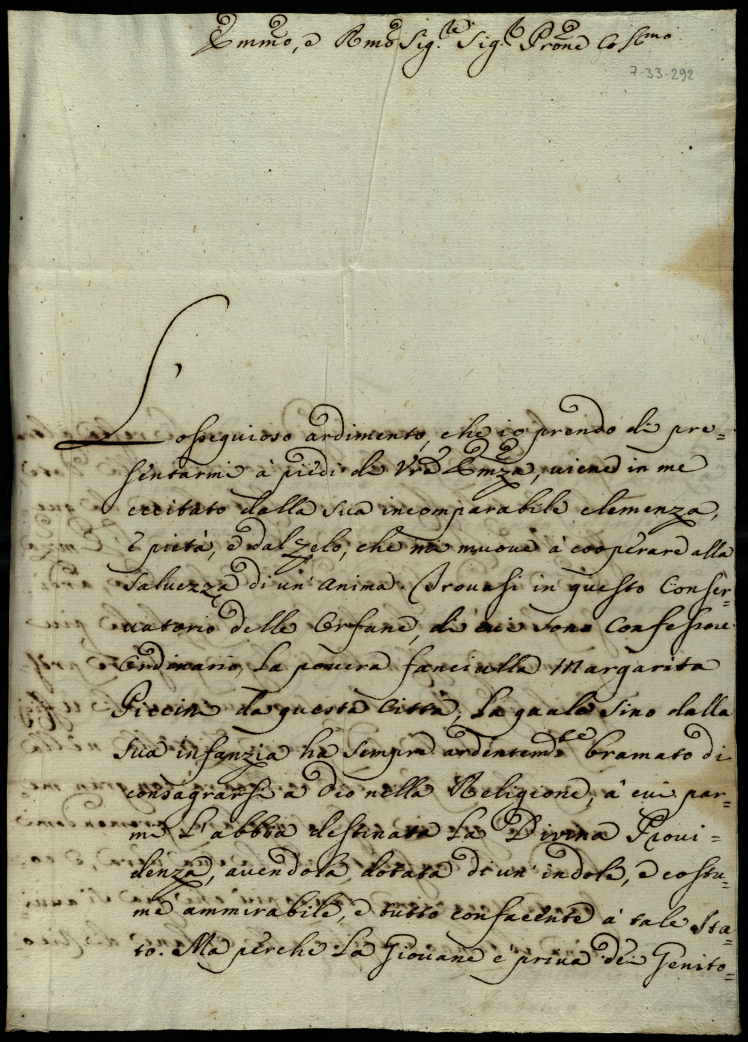 Emmo, e Rmo Sig.re Sig.r Prone Colmo
7-33-292
L'ossequioso ardimento, che io prendo di pre=
sentarmi à piedi di Vra Emza, viene in me
eccitato dalla sua incomparabile clemenza,
e pietà, e dal zelo, che mi muove à cooperare alla
salvezza di un' anima. Trovasi in questo Conser=
vatorio delle Orfane, di cui sono Confessore
Ordinario, la povera fanciulla Margarita
Piccin da questa Città, la quale sino dalla
sua infanzia ha sempre ardentemte bramato di
consagrarsi à Dio nella Religione, à cui par=
mi l'abbia destinata la Divina Provi=
denza, avendola dotata di un' indole, e costu=
me ammirabile, e tutto confacente à tale sta=
to. Ma perche la Giovane e priva de Genito=